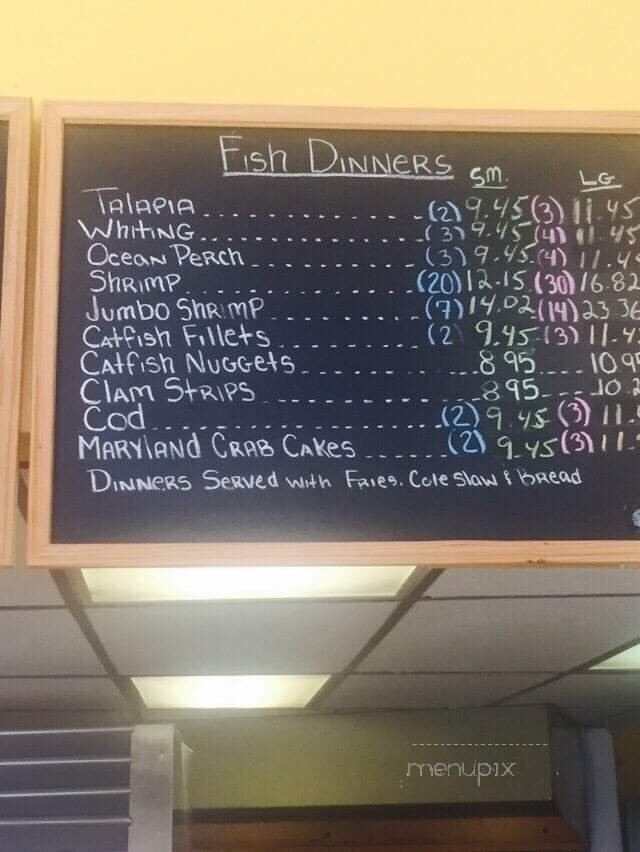 Fish Dinners
Sm. LG
Talapia (2) 9.45 (3) 11.45
Whiting (3) 9.45 (4) 11.45
Ocean Perch (3) 9.45 (4) 11.4
Shrimp (20) 12.15 (30) 16.82
Jumbo Shrimp (7) 14.02 (14) 23.36
Catfish Fillets (2) 9.45 (3) 11.4
Catfish Nuggets 8 95 10.9
Clam Strips 8 95 10.2
Cod (2) 9.45 (3) 11.
Maryland Crab Cakes (2) 9.45 (3) 11.
Dinners Served with Fries. Cole slaw & Bread
menupix